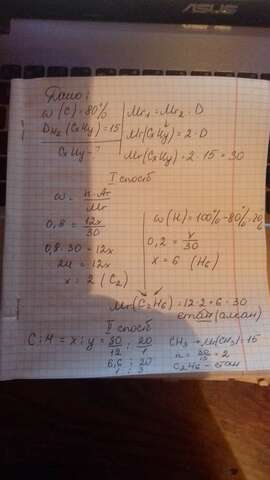 ASUS
Дано:
w(C)=80%
D H₂ (CxHy)=15
CxHy-?
Mr₁=Mr₂·D
Mr(CxHy)=2·D
Mr(CxHy)=2·15=30
I способ
w=n·Ar/Mr
0,8=12x/30
0,8·30=12x
24=12x
x=2 (C₂)
w(H)=100%-80%=20%
0,2=y/30
x=6 (H₆)
Mr(C₂H₆)=12·2+6=30
етан(алкан)
II способ
C:H=x:y=80/12:20/1
6,6:20
1:3
CH₃→Mr(CH₃)=15
n=30/15=2
C₂H₆-етан